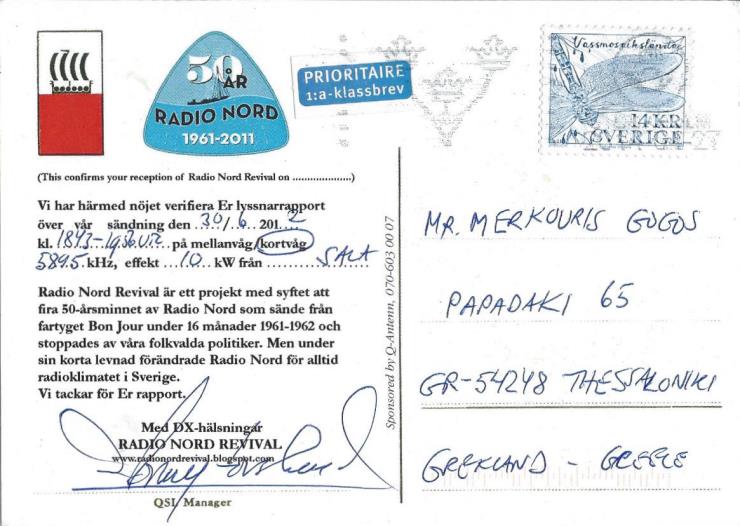 50
ÅR
RADIO NORD
1961-2011
PRIORITAIRE
1:a-klassbrev
Vassmosaikslända
14 KR
SVERIGE
(This confirms your reception of Radio Nord Revival on ....................)
Vi har härmed nöjet verifiera Er lyssnarrapport
över vår sändning den 30/6 2012
kl. 1843-1936 UTC på mellanvåg/kortvåg
5895 kHz, effekt 10 kW från SALA
Radio Nord Revival är ett projekt med syftet att
fira 50-årsminnet av Radio Nord som sände från
fartyget Bon Jour under 16 månader 1961-1962 och
stoppades av våra folkvalda politiker. Men under
sin korta levnad förändrade Radio Nord för alltid
radioklimatet i Sverige.
Vi tackar för Er rapport.
Med DX-hälsningar
RADIO NORD REVIVAL
www.radionordrevival.blogspot.com
QSL Manager
Sponsored by Q-Antenn, 070-603 00 07
MR. MERKOURIS GOGOS
PAPADAKI 65
GR-54248 THESSALONIKI
GREKLAND - GREECE